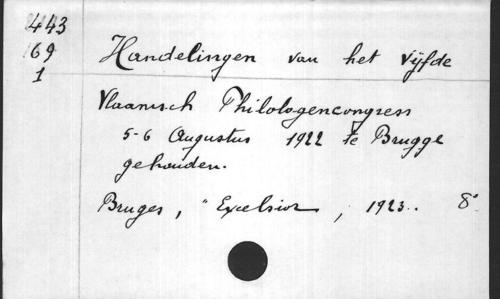 443
69
1
Handelingen van het vijfde
Vlaamsch Philologencongress
5-6 Augustus 1922 te Brugge
gehouden.
Bruges, "Excelsior, 1923. 8°